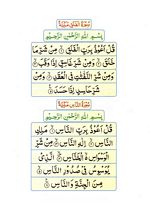 سُورَةُ الْفَلَقِ مَكِّيَّةٌ
بِسْمِ اللهِ الرَّحْمٰنِ الرَّحِيْمِ
قُلْ أَعُوذُ بِرَبِّ الْفَلَقِ ۝ مِنْ شَرِّ مَا
خَلَقَ ۝ وَمِنْ شَرِّ غَاسِقٍ إِذَا وَقَبَ ۝
وَمِنْ شَرِّ النَّفَّاثَاتِ فِي الْعُقَدِ ۝ وَمِنْ
شَرِّ حَاسِدٍ إِذَا حَسَدَ ۝
سُورَةُ النَّاسِ مَكِّيَّةٌ
بِسْمِ اللهِ الرَّحْمٰنِ الرَّحِيْمِ
قُلْ أَعُوذُ بِرَبِّ النَّاسِ ۝ مَلِكِ
النَّاسِ ۝ إِلٰهِ النَّاسِ ۝ مِنْ شَرِّ
الْوَسْوَاسِ الْخَنَّاسِ ۝ الَّذِي
يُوَسْوِسُ فِي صُدُورِ النَّاسِ ۝
مِنَ الْجِنَّةِ وَالنَّاسِ ۝